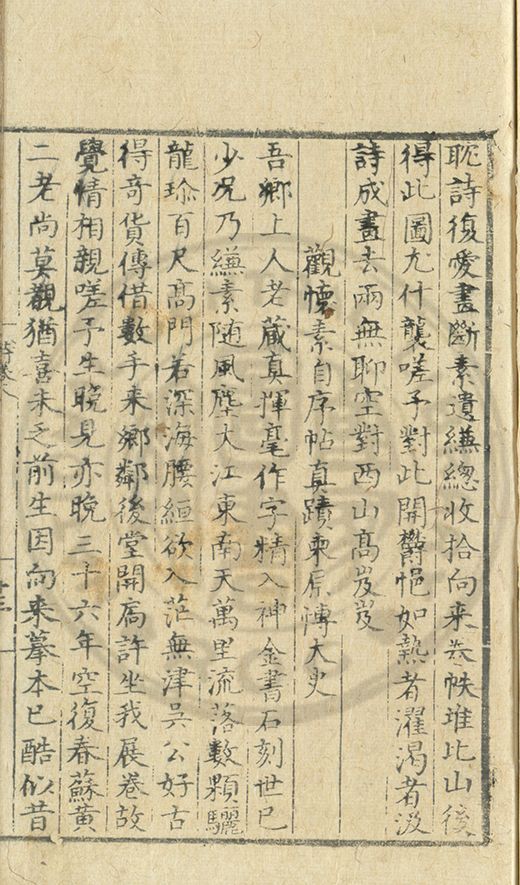 耽詩復愛畫斷素遺縑總收拾向来卷帙堆比山後
得此圖尤什襲嗟予對此開欝悒如熱者濯渴者汲
詩成畫去兩無聊空對西山髙岌岌
觀懷素自序帖真蹟柬屠傅太史
吾鄉上人老藏真揮毫作字精入神金書石刻世已
少况乃縑素随風塵大江東南天萬里流落數顆驪
龍珍百尺髙門若深海腰絙欲入茫無津吳公好古
得竒貨傳借數手来鄉鄰後堂開扄許坐我展卷故
覺情相親嗟予生晚見亦晚三十六年空復春蘇黃
二老尚莫觀猶喜未乏前生因向来摹本已酷似昔